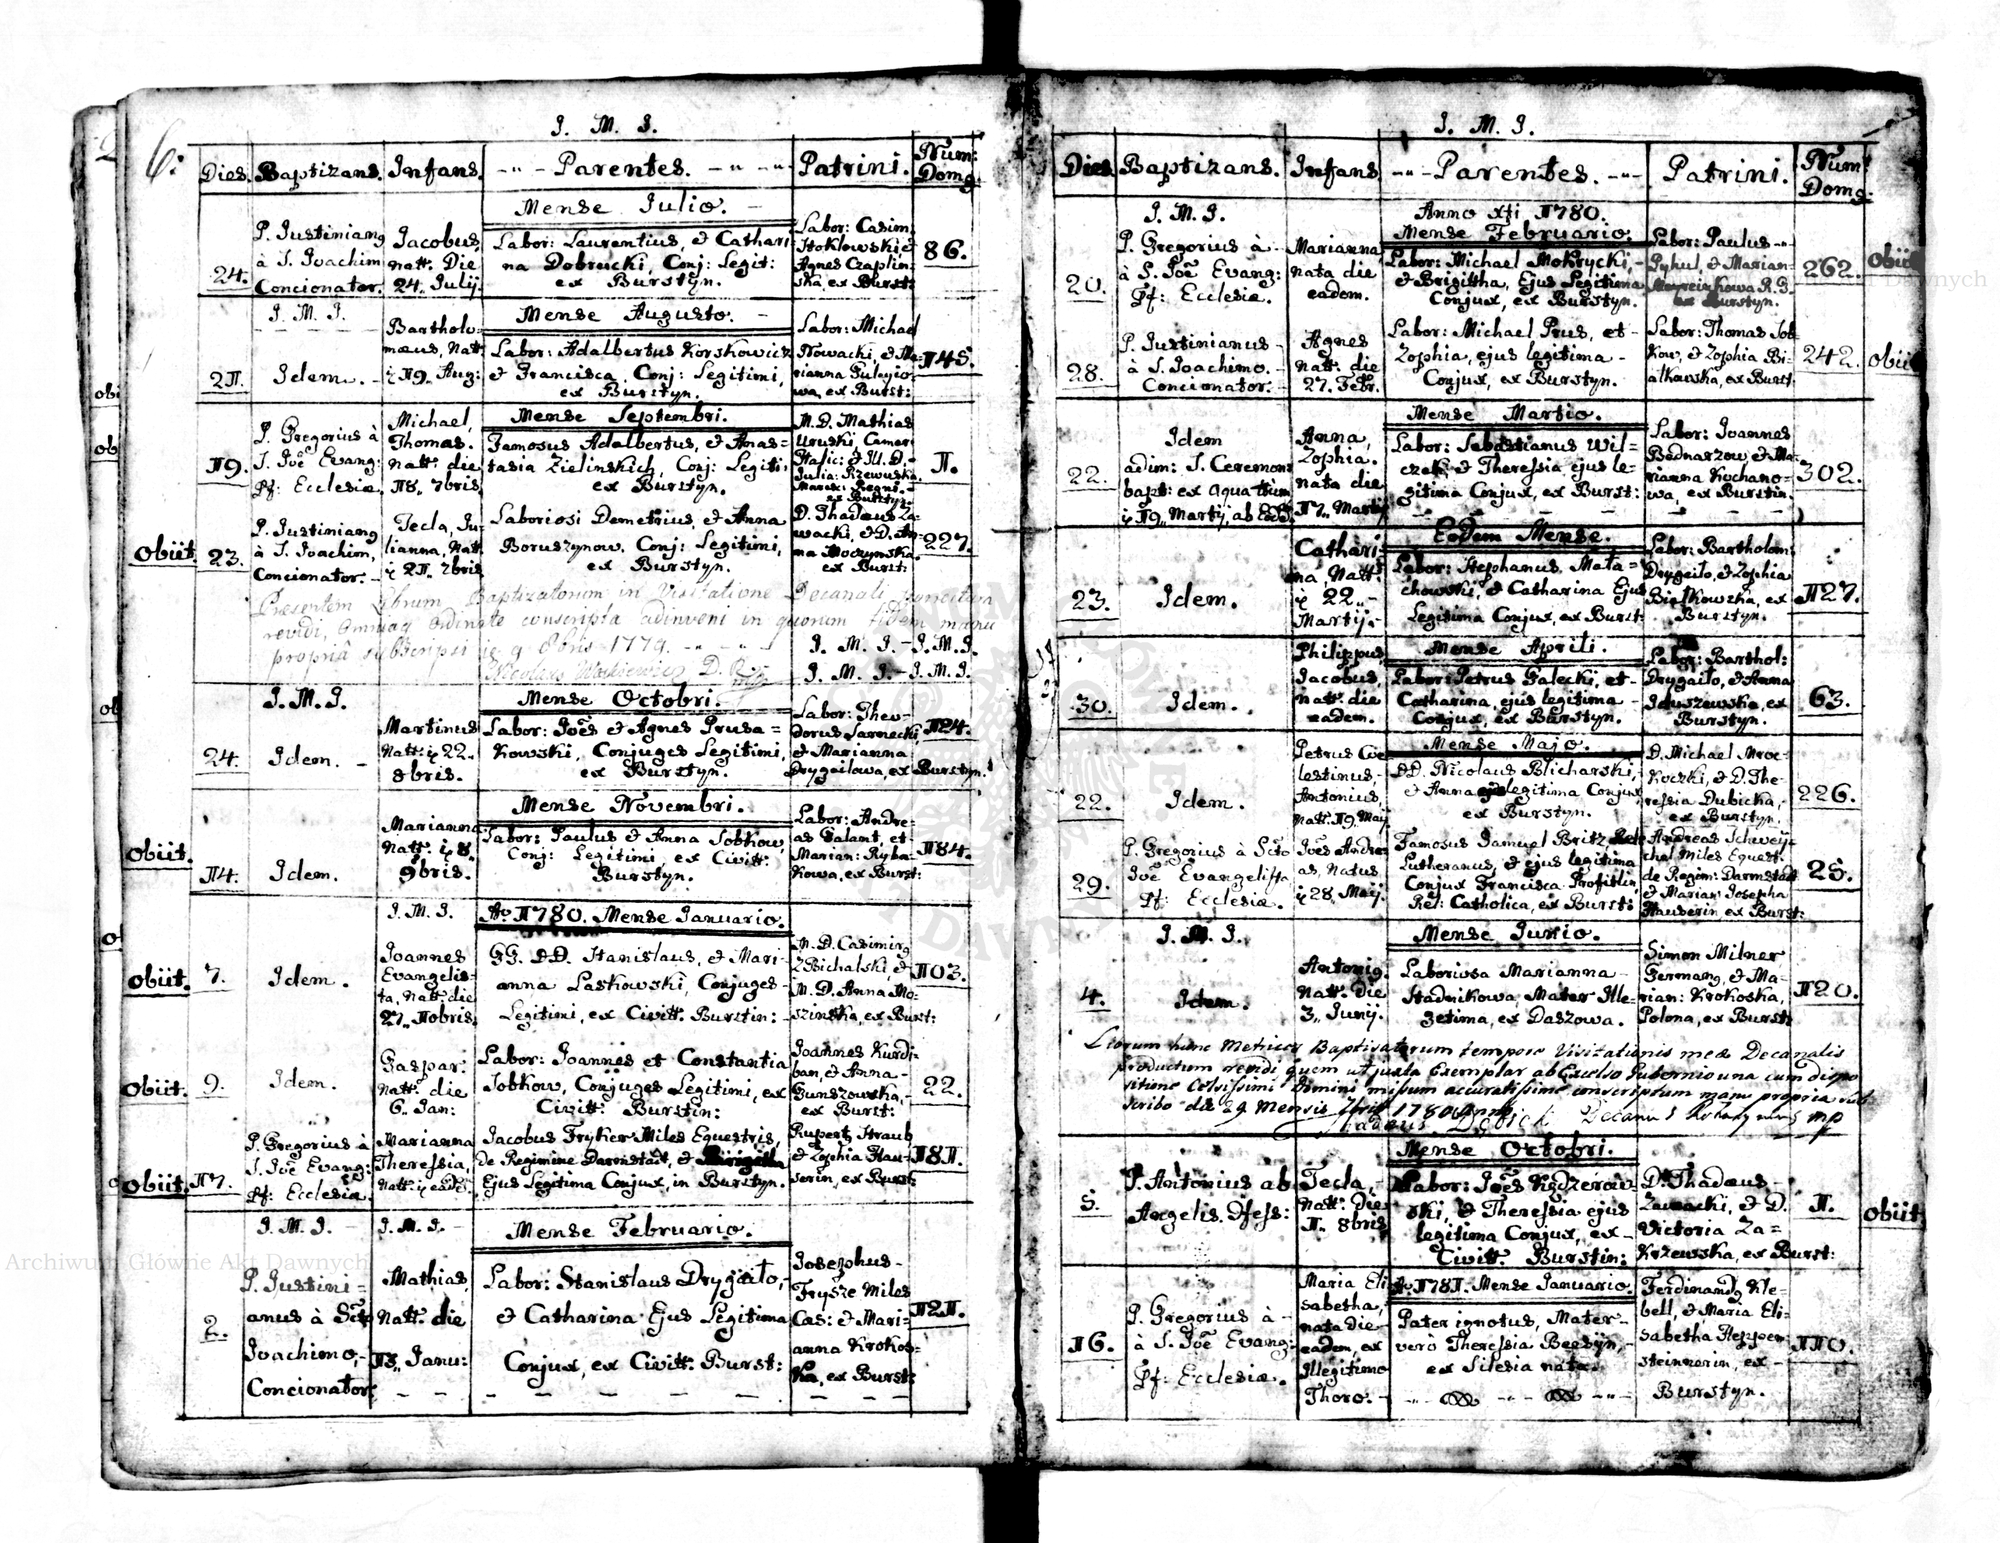 6:
J. M. J.
Dies. Baptizans. Infans. Parentes. Patrini. Num: Domq:
Mense Julio.
24.
P. Justinianq
à S. Joachim
Concionator.
Jacobus,
natt. Die
24. Julij.
Labor: Laurentius, et Cathari
na Dobrucki, Conj: Legit:
ex Burstyn.
Labor: Casim:
Stoklowski, et
Agnes Czaplin:
ska, ex Burst:
86.
J. M. J.
Mense Augusto.
21.
Idem.
Bartholo-
mæus, Natt.
19. Aug:
Labor: Adalbertus Korskowicz
et Francisca, Conj: Legitimi,
ex Burstyn.
Labor: Michael
Nowacki, et Ma-
rianna
wa, ex Burst:
145.
Mense Septembri.
19.
P. Gregorius à
S. Joē Evang:
Pf: Ecclesiæ.
Michael,
Thomas.
natt. die
18. 7bris.
Famosus Adalbertus, et Anas=
tasia Zielinskich, Conj: Legiti.
ex Burstyn.
M. D. Mathias
Uruski, Camer:
Halic: et M. D.
Julia: Rzewuska
ex Burstyn.
1.
Obiit.
23.
P. Justinianq
à S. Joachim,
Concionator.
Tecla, Ju-
lianna, Natt.
21. 7bris
Laboriosi Demetrius, et Anna
Boruszynow, Conj: Legitimi,
ex Burstyn.
D. Thadæus Za-
wacki, et D. An-
na Moczynska.
ex Burst:
227.
Presentem Librum Baptizatorum in Visitatione Decanali
revidi, Omniaq ordinate conscripta adinveni in quorum fidem manu
propria subscripsi 9 8bris 1779.
J. M. J. - J. M. J.
J. M. J. - J. M. J.
J. M. J.
Mense Octobri.
24.
Idem.
Martinus
Natt. 22.
8bris.
Labor: Joēs et Agnes Prusa=
kowski, Conjuges Legitimi,
ex Burstyn.
Labor: Theo-
dorus Sarnecki,
et Marianna
Drygailowa, ex Burstyn.
124.
Mense Novembri.
Obiit.
14.
Idem.
Marianna
Natt. 8.
9bris.
Labor: Paulus et Anna Sobkow,
Conj: Legitimi, ex Civitt.
Burstyn.
Labor: Andre-
as Galant, et
Marian: Ryba-
kowa, ex Burst:
184.
J. M. J.
Ao 1780. Mense Januario.
Obiit.
7.
Idem.
Joannes
Evangelis-
ta, natt. die
27. 10bris.
GG. DD. Stanislaus, et Mari-
anna Laskowski, Conjuges
Legitimi, ex Civitt. Burstin:
M. D. Casimirq
Zbichalski, et
M. D. Anna Mo-
szinska, ex Burst:
103.
Obiit.
9.
Idem.
Gaspar:
Natt. die
6. Jan:
Labor: Joannes et Constantia
Sobkow, Conjuges Legitimi, ex
Civitt: Burstin:
Joannes Kurdi-
ban, et Anna
Gunszowska,
ex Burst:
22.
Obiit.
17.
P. Gregorius à
S. Joē Evang:
Pf: Ecclesiæ
Marianna
Theressia,
Natt.
Jacobus Fryker Miles Equestris,
de Regimine Darmstadt, et Brigitta
Ejus Legitima Conjux, in Burstyn.
Rupert Straub
et Zophia Hau-
serin, ex Burst:
181.
J. M. J.
J. M. J.
Mense Februario.
2.
P. Justini-
anus à Scto
Joachimo,
Concionator.
Mathias,
Natt. die
Janu:
Labor: Stanislaus Drygailo,
et Catharina Ejus Legitima
Conjux, ex Civitt. Burst:
Josephus
Frysze Miles
Cas: et Mari-
anna Krokos=
ka, ex Burst:
121.
J. M. J.
Dies Baptizans. Infans Parentes. Patrini. Num: Domq:
J. M. J.
Anno xti 1780.
Mense Februario.
20.
P. Gregorius à
à S. Joē Evang:
Pf: Ecclesiæ.
Marianna
nata die
eadem.
Labor: Michael Mokrycki,
et Brigittha, Ejus Legitima
Conjux, ex Burstyn.
Labor: Paulus
Pyhul, et Marian-
ex Burstyn.
262.
Obiit
28.
P. Justinianus
à S. Joachimo.
Concionator.
Agnes
Natt. die
27. Febr.
Labor: Michael Prus, et
Zophia, ejus legitima
Conjux, ex Burstyn.
Labor: Thomas Sob-
kow, et Zophia Bi-
alkowska, ex Burst.
242.
Obiit
Mense Martio.
22.
Idem
adim: S. Ceremon:
bapt: ex aqua
19. Martij, ab
Anna,
Zophia.
nata die
17. Martij
Labor: Sebastianus Wil=
czek, et Theressia, ejus le-
gitima Conjux, ex Burst:
Labor: Joannes
Bednarzow, et Ma-
rianna Kochano-
wa, ex Burstin.
302.
Eodem Mense.
23.
Idem.
Cathari-
na, Natt.
22.
Martij.
Labor: Stephanus, Mata=
chowski, et Catharina Ejus
Legitima Conjux, ex Burst:
Labor: Bartholom:
Drygailo, et Zophia
Bialkowska, ex
Burstyn.
127.
Mense Aprili.
30.
Idem.
Philippus,
Jacobus,
natt. die
eadem.
Labor: Petrus Galecki, et
Catharina, ejus legitima
Conjux, ex Burstyn.
Labor: Barthol:
Drygailo, et Anna
Iduszewska, ex
Burstyn.
63.
Mense Majo.
22.
Idem.
Petrus Coe
lestinus,
Antonius,
natt. 19. Maij
DD. Nicolaus Blicharski,
et Anna ejus legitima Conjux
ex Burstyn.
D. Michael Mroc-
koczki, et D. The-
ressia Dubicka,
ex Burstyn.
226.
29.
P. Gregorius à Scto
Joē Evangelista
Pf: Ecclesiæ.
Joēs Andre-
as, Natus,
28. Maij.
Famosus Samuel Britz
Lutheranus, et ejus legitima
Conjux Francisca Profitlin,
Rel: Catholica, ex Burst:
Andreas Schweij-
chel Miles Equest.
de Regim: Darmstadt
et Marian: Josepha
Hauserin ex Burst:
25.
J. M. J.
Mense Junio.
4.
Idem.
Antoniq.
Natt. Die
3. Junij.
Laboriosa Marianna
Stadnikowa, Mater Ille-
getima, ex Daszowa.
Simon Milner
Germanq, et Ma-
rian: Krokoska,
Polona, ex Burst:
120.
Librum hunc Metrices Baptisatorum tempore Visitationis meæ Decanalis
productum revidi quem ut juxta Exemplar ab Excelso Gubernio una cum dispo
sitione Celsissimi Domini missum accuratissime conscriptum manu propria sub
scribo die 29 Mensis 1780 Anno
Mense Octobri.
5.
P. Antonius ab
Angelis.
Tecla,
Natt. Die
1. 8bris
Labor: Joēs Kędzerow-
ski, et Theressia ejus
legitima Conjux, ex
Civitt. Burstin:
D. Thadæus
Zawacki, et D.
Victoria Za=
krzewska, ex Burst:
1.
Obiit
Ao 1781. Mense Januario.
16.
P. Gregorius à
à S. Joē Evang:
Pf: Ecclesiæ.
Maria Eli
sabetha,
nata die
eadem, ex
Illegitimo
Thoro.
Pater ignotus, Mater
verò Theressia Beesijn,
ex Silesia nata.
Ferdinandq Kle-
bell, et Maria Eli-
sabetha Heppen
steinnerin, ex
Burstyn.
110.
Archiwum Główne Akt Dawnych